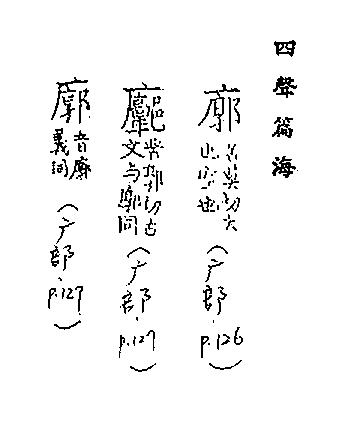 四聲篇海
廓 苦莫切大也空也 (广部.p.126)
苦郭切古文与廓同 (广部.p.127)
音廓義同 (广部.p.127)